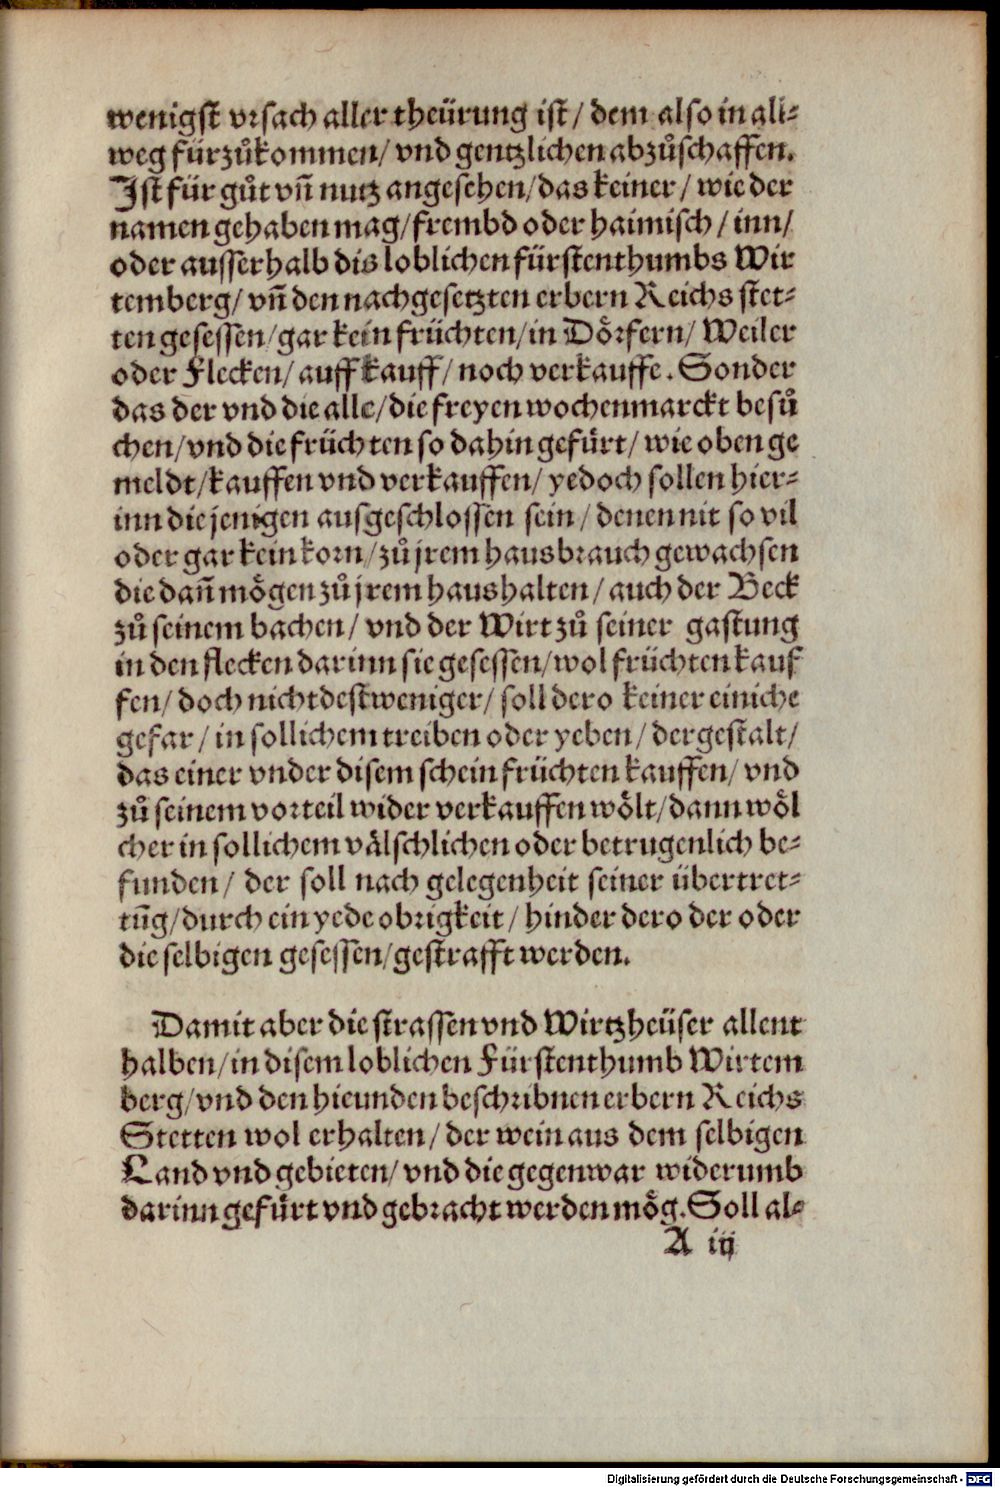 wenigst vrsach aller theürung ist / dem also in all-
weg fürzůkommen / vnd gentzlichen abzůschaffen.
Ist für gůt vñ nutz angesehen / das keiner / wie der
namen gehaben mag / frembd oder haimisch / inn /
oder ausserhalb dis loblichen fürstenthumbs Wir
temberg / vñ den nachgesetzten erbern Reichs stet-
ten gesessen / gar kein früchten / in Dörfern / Weiler
oder Flecken / auff kauff / noch verkauffe. Sonder
das der vnd die alle / die freyen wochenmarckt besů
chen / vnd die früchten so dahin gefürt / wie oben ge
meldt / kauffen vnd verkauffen / yedoch sollen hier-
inn die jenigen ausgeschlossen sein / denen nit so vil
oder gar kein korn / zů jrem hausbrauch gewachsen
die dañ mögen zů jrem haushalten / auch der Beck
zů seinem bachen / vnd der Wirt zů seiner gastung
in den flecken darinn sie gesessen / wol früchten kauf
fen / doch nichtdestweniger / soll dero keiner einiche
gefar / in sollichem treiben oder yeben / dergestalt /
das einer vnder disem schein früchten kauffen / vnd
zů seinem vorteil wider verkauffen wölt / dann wöl
cher in sollichem välschlichen oder betrugenlich be-
funden / der soll nach gelegenheit seiner übertret-
tũg / durch ein yede obrigkeit / hinder dero der oder
die selbigen gesessen / gestrafft werden.
Damit aber die strassen vnd Wirtzheüser allent
halben / in disem loblichen Fürstenthumb Wirtem
berg / vnd den hieunden beschribnen erbern Reichs
Stetten wol erhalten / der wein aus dem selbigen
Land vnd gebieten / vnd die gegenwar widerumb
darinn gefürt vnd gebracht werden mög. Soll al-
A iij
Digitalisierung gefördert durch die Deutsche Forschungsgemeinschaft - DFG